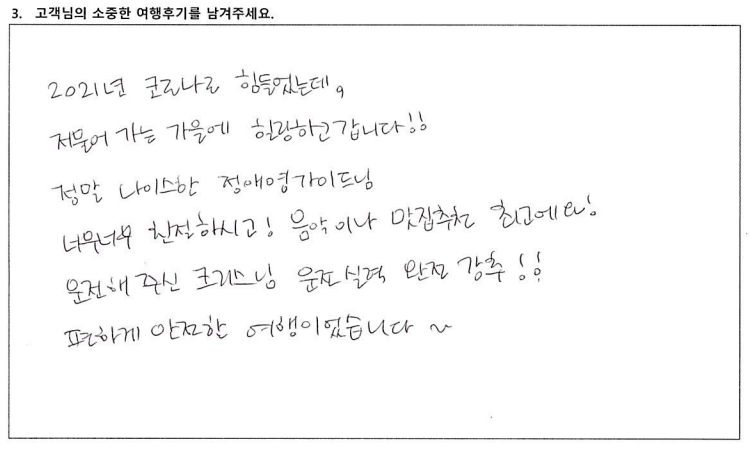 3. 고객님의 소중한 여행후기를 남겨주세요.
2021년 코로나로 힘들었는데,
저물어 가는 가을에 힐링하고 갑니다!!
정말 나이스한 정애영가이드님
너무너무 친절하시고! 음악이나 맛집추천 최고에요!
운전해 주신 크리스님 운전실력 완전 강추!!
편하게 안전한 여행이었습니다 ~